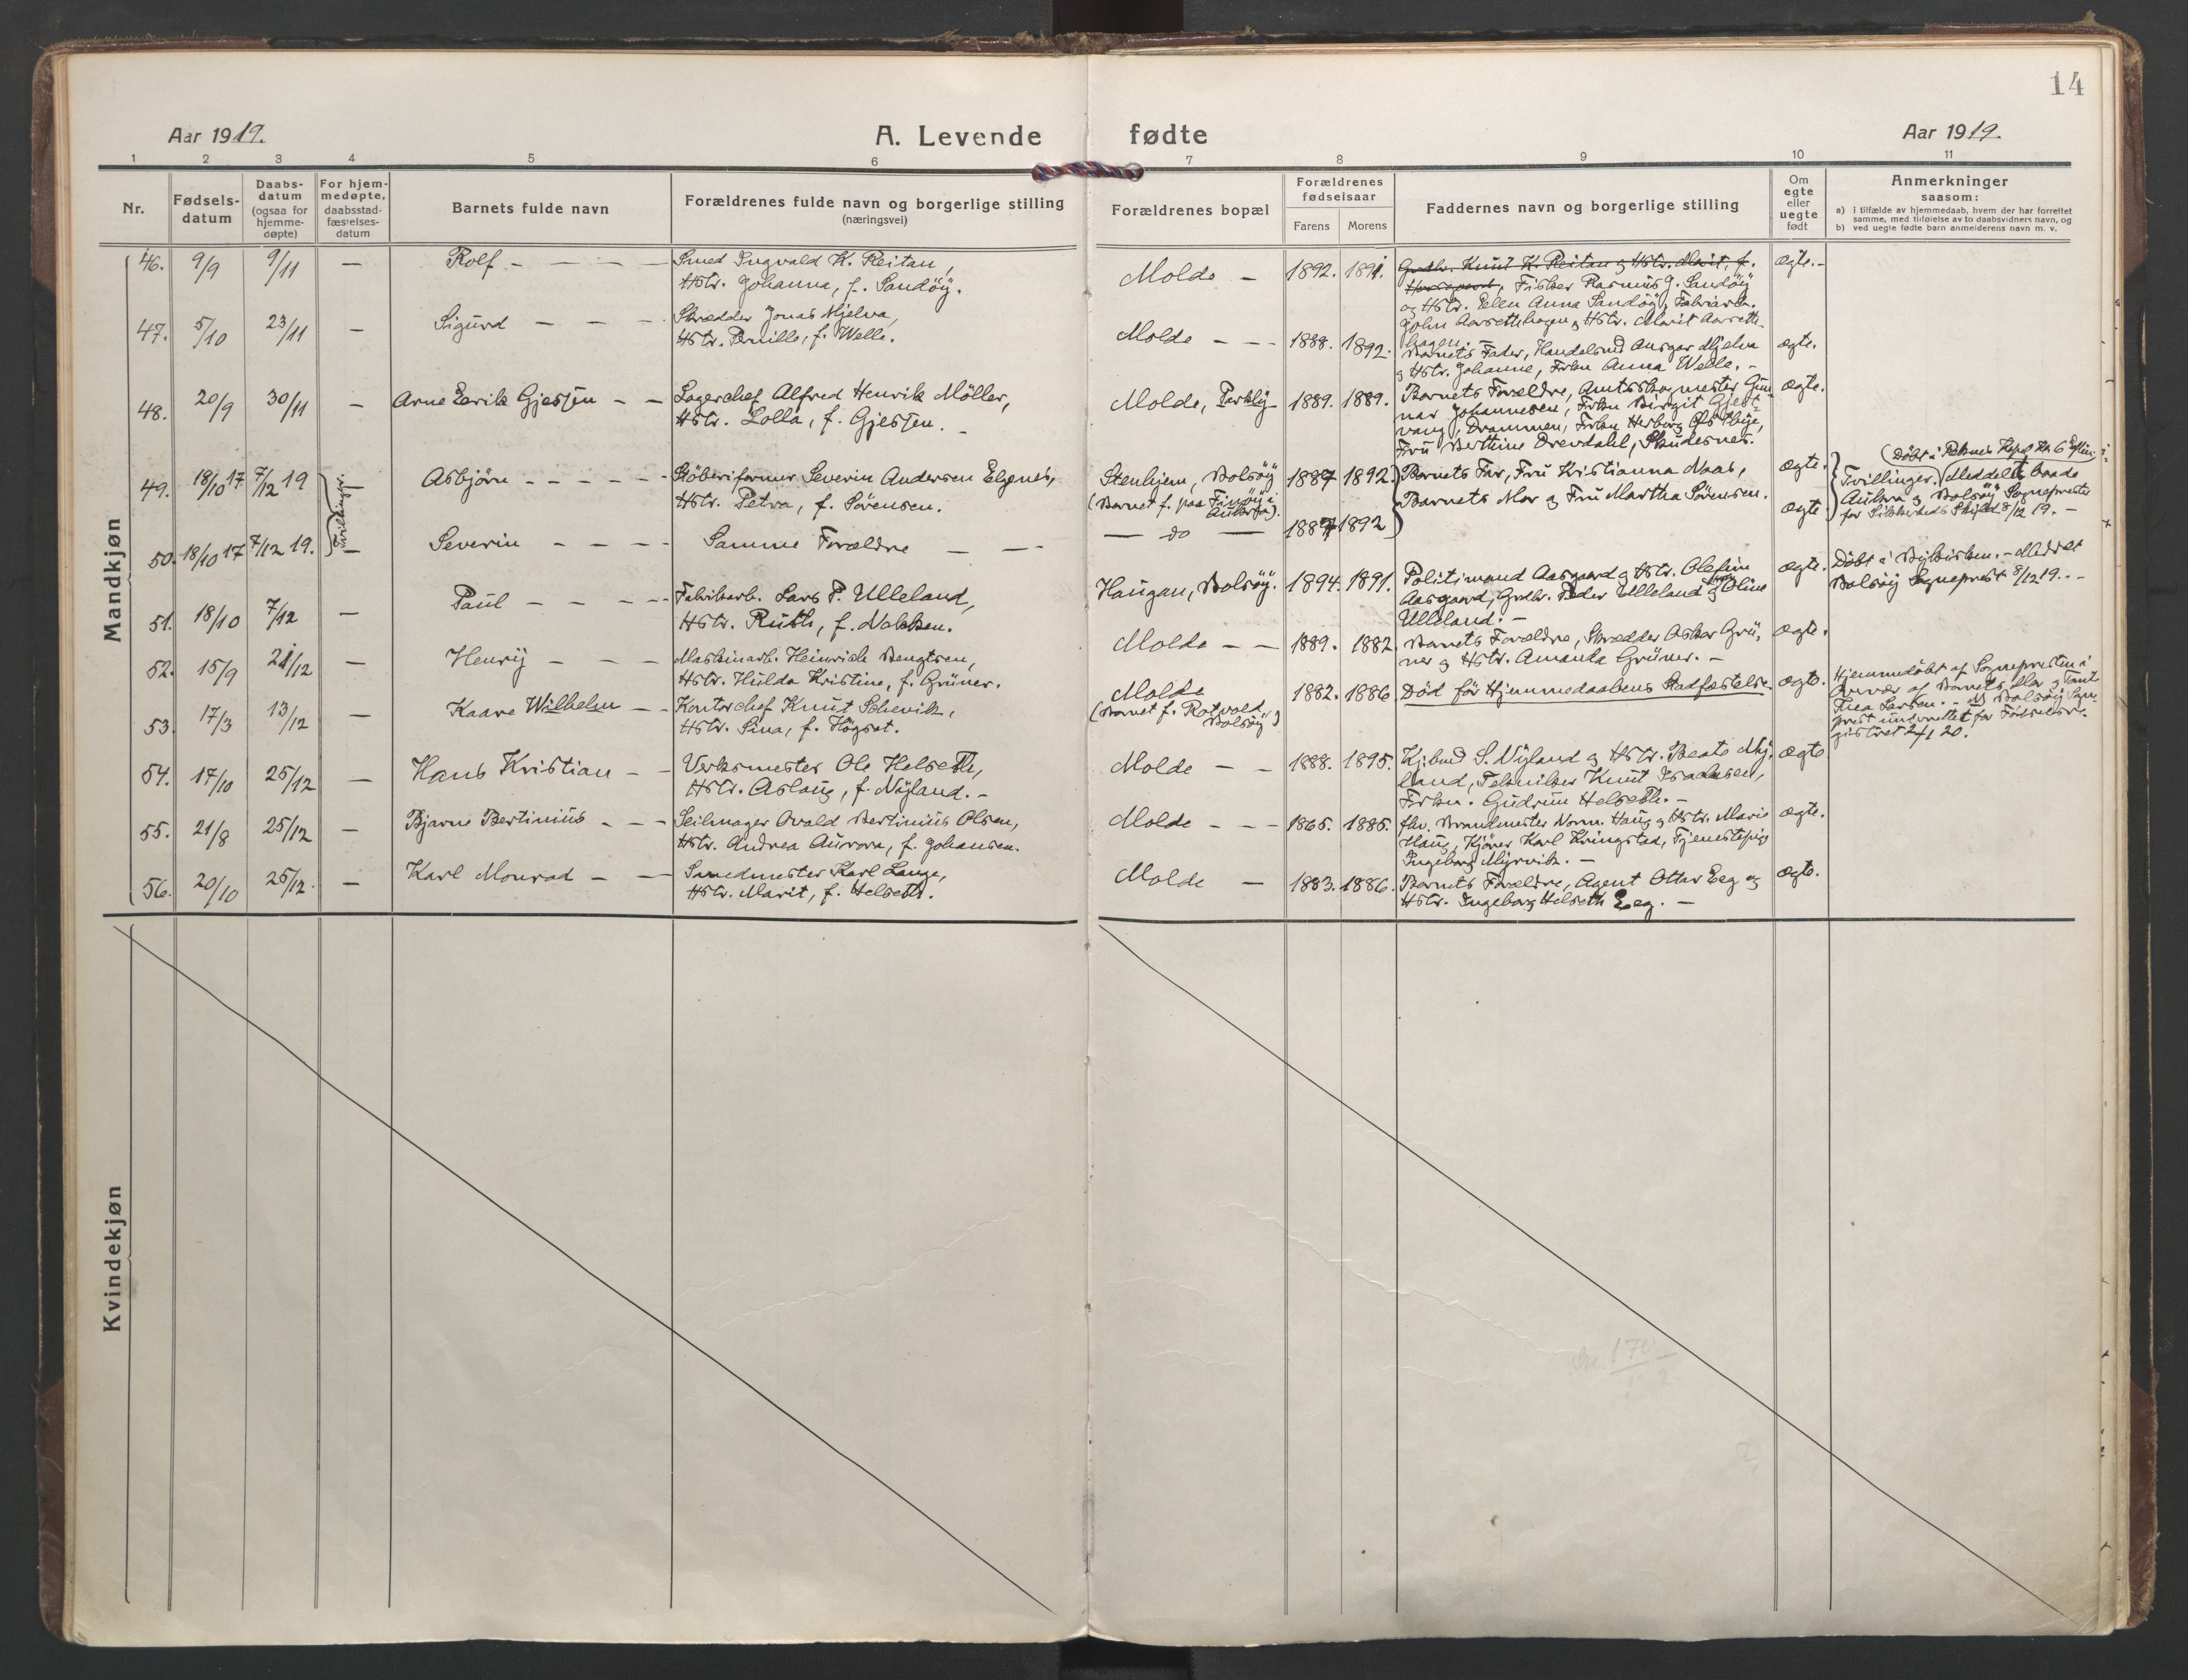 14
Aar 1919.
A. Levende fødte
Aar 1919.
1 2 3 4 5 6 7 8 9 10 11
Nr.
Fødsels-
datum
Daabs-
datum
(ogsaa for
hjemme-
døpte)
For hjem-
medøpte,
daabsstad-
fæstelses-
datum
Barnets fulde navn
Forældrenes fulde navn og borgerlige stilling
(næringsvei)
Forældrenes bopæl
Forældrenes
fødselsaar
Farens Morens
Faddernes navn og borgerlige stilling
Om
egte
eller
uegte
født
Anmerkninger
saasom:
a) i tilfælde av hjemmedaab, hvem der har forrettet
samme, med tilføielse av to daabsvidners navn, og
b) ved uegte fødte barn anmelderens navn m. v.
Mandkjøn
46. 9/9 9/11 — Rolf — Smed Ingvald K. Reitan,
Hstr. Johanna, f. Sandöy.
Molde — 1892. 1891. Gaardbr. Knut K. Reitan og Hstr. Marit, f.
Fisker Rasmus J. Sandöy
og Hstr. Ellen Anna Sandöy, Fabrikarb.
John Aarsethhagen og Hstr. Marit Aarseth-
hagen. —
ægte. —
47. 5/10 23/11 — Sigurd — Skrædder Jonas Mjelva,
Hstr. Pernille, f. Welle.
Molde — 1888. 1892. Barnets Fader, Handelsmd Ansgar Mjelva
og Hstr. Johanne, Frkn Anna Welle. —
ægte.
48. 20/9 30/11 — Arne Eerik Gjessen — Lagerchef Alfred Henrik Möller,
Hstr. Lolla, f. Gjessen. —
Molde, Parkly 1889. 1889. Barnets Forældre, Amtsskogmester Gun-
nar Johannesen, Frkn Birgit Gjest-
vang, Drammen, Frkn Herborg
Fru Berthine Drevdahl, Skudesnes.
ægte.
49. 18/10 17 7/12 19 — Asbjörn — Stöberiformer Severin Andersen Elgenes,
Hstr. Petra, f. Sörensen.
Stenhjem, Bolsöy
(Barnet f. paa Finöy i
Aukra).
1887 1892 Barnets Far, Fru Kristianna Naas,
Barnets Mor og Fru Martha Sörensen.
ægte.
Tvillinger.
(Döbt i Kapel Kl. 6 Eftm.
Tvillinger. Meddelt baade
Aukra og Bolsöy Sogneprester
for Sikkerheds Skyld 8/12 19. —
50. 18/10 17 7/12 19. — Severin — Samme Forældre —
— do — 1887 1892 ægte
51. 18/10 7/12 — Paul — Fabrikarb. Lars P. Ulleland,
Hstr. Ruth, f. Nakken.
Haugan, Bolsöy. 1894. 1891. Politimand Aasgaard og Hstr. Olefine
Aasgaard, Gaardbr. Peder Ulleland og Hstr. Oline
Ulleland. —
ægte. Döbt i Bykirken. — Meddelt
Bolsöy Sogneprest 8/12 19. —
52. 15/9 21/12 — Henry — Maskinarb. Heinrich Bengtsen,
Hstr. Hulda Kristine, f. Grüner.
Molde — 1889. 1882. Barnets Forældre, Skrædder Oskar Grü-
ner og Hstr. Amanda Grüner. —
ægte.
53. 17/3 13/12 — Kaare Wilhelm — Kontorchef Knut Schevik,
Hstr. Sina, f. Högset.
Molde
(Barnet f. Rotvold
Bolsöy)
1882. 1886. Död för Hjemmedaabens Stadfæstelse.
ægte. Hjemmedöbt af Sognepresten i
Nærvær af Barnets Mor og Tante
Thea Larsen. — Bolsöy Sogne-
prest underrettet for Födselsre-
gistret 2/1 20.
54. 17/10 25/12 — Hans Kristian — Verksmester Ole Helseth,
Hstr. Aslaug, f. Nyland. —
Molde — 1888. 1895. Kjbmd S. Nyland og Hstr. Beate Ny-
land, Tekniker Knut Isachsen,
Frkn. Gudrun Helseth. —
ægte
55. 21/8 25/12 — Bjarne Bertinius — Seilmager Ovald Bertinius Olsen,
Hstr. Andrea Aurora, f. Johansen.
Molde — 1865. 1885. fhv. Brandmester Norm. Haug og Hstr. Marie
Haug, Kjörer Karl Kringstad, Tjenestepige
Ingeborg Myrvik. —
ægte.
56. 20/10 25/12. — Karl Monrad — Smedmester Karl Lange,
Hstr. Marit, f. Helseth.
Molde — 1883. 1886. Barnets Forældre, Agent Ottar Eeg og
Hstr. Ingeborg Helseth Eeg. —
ægte.
Kvindekjøn